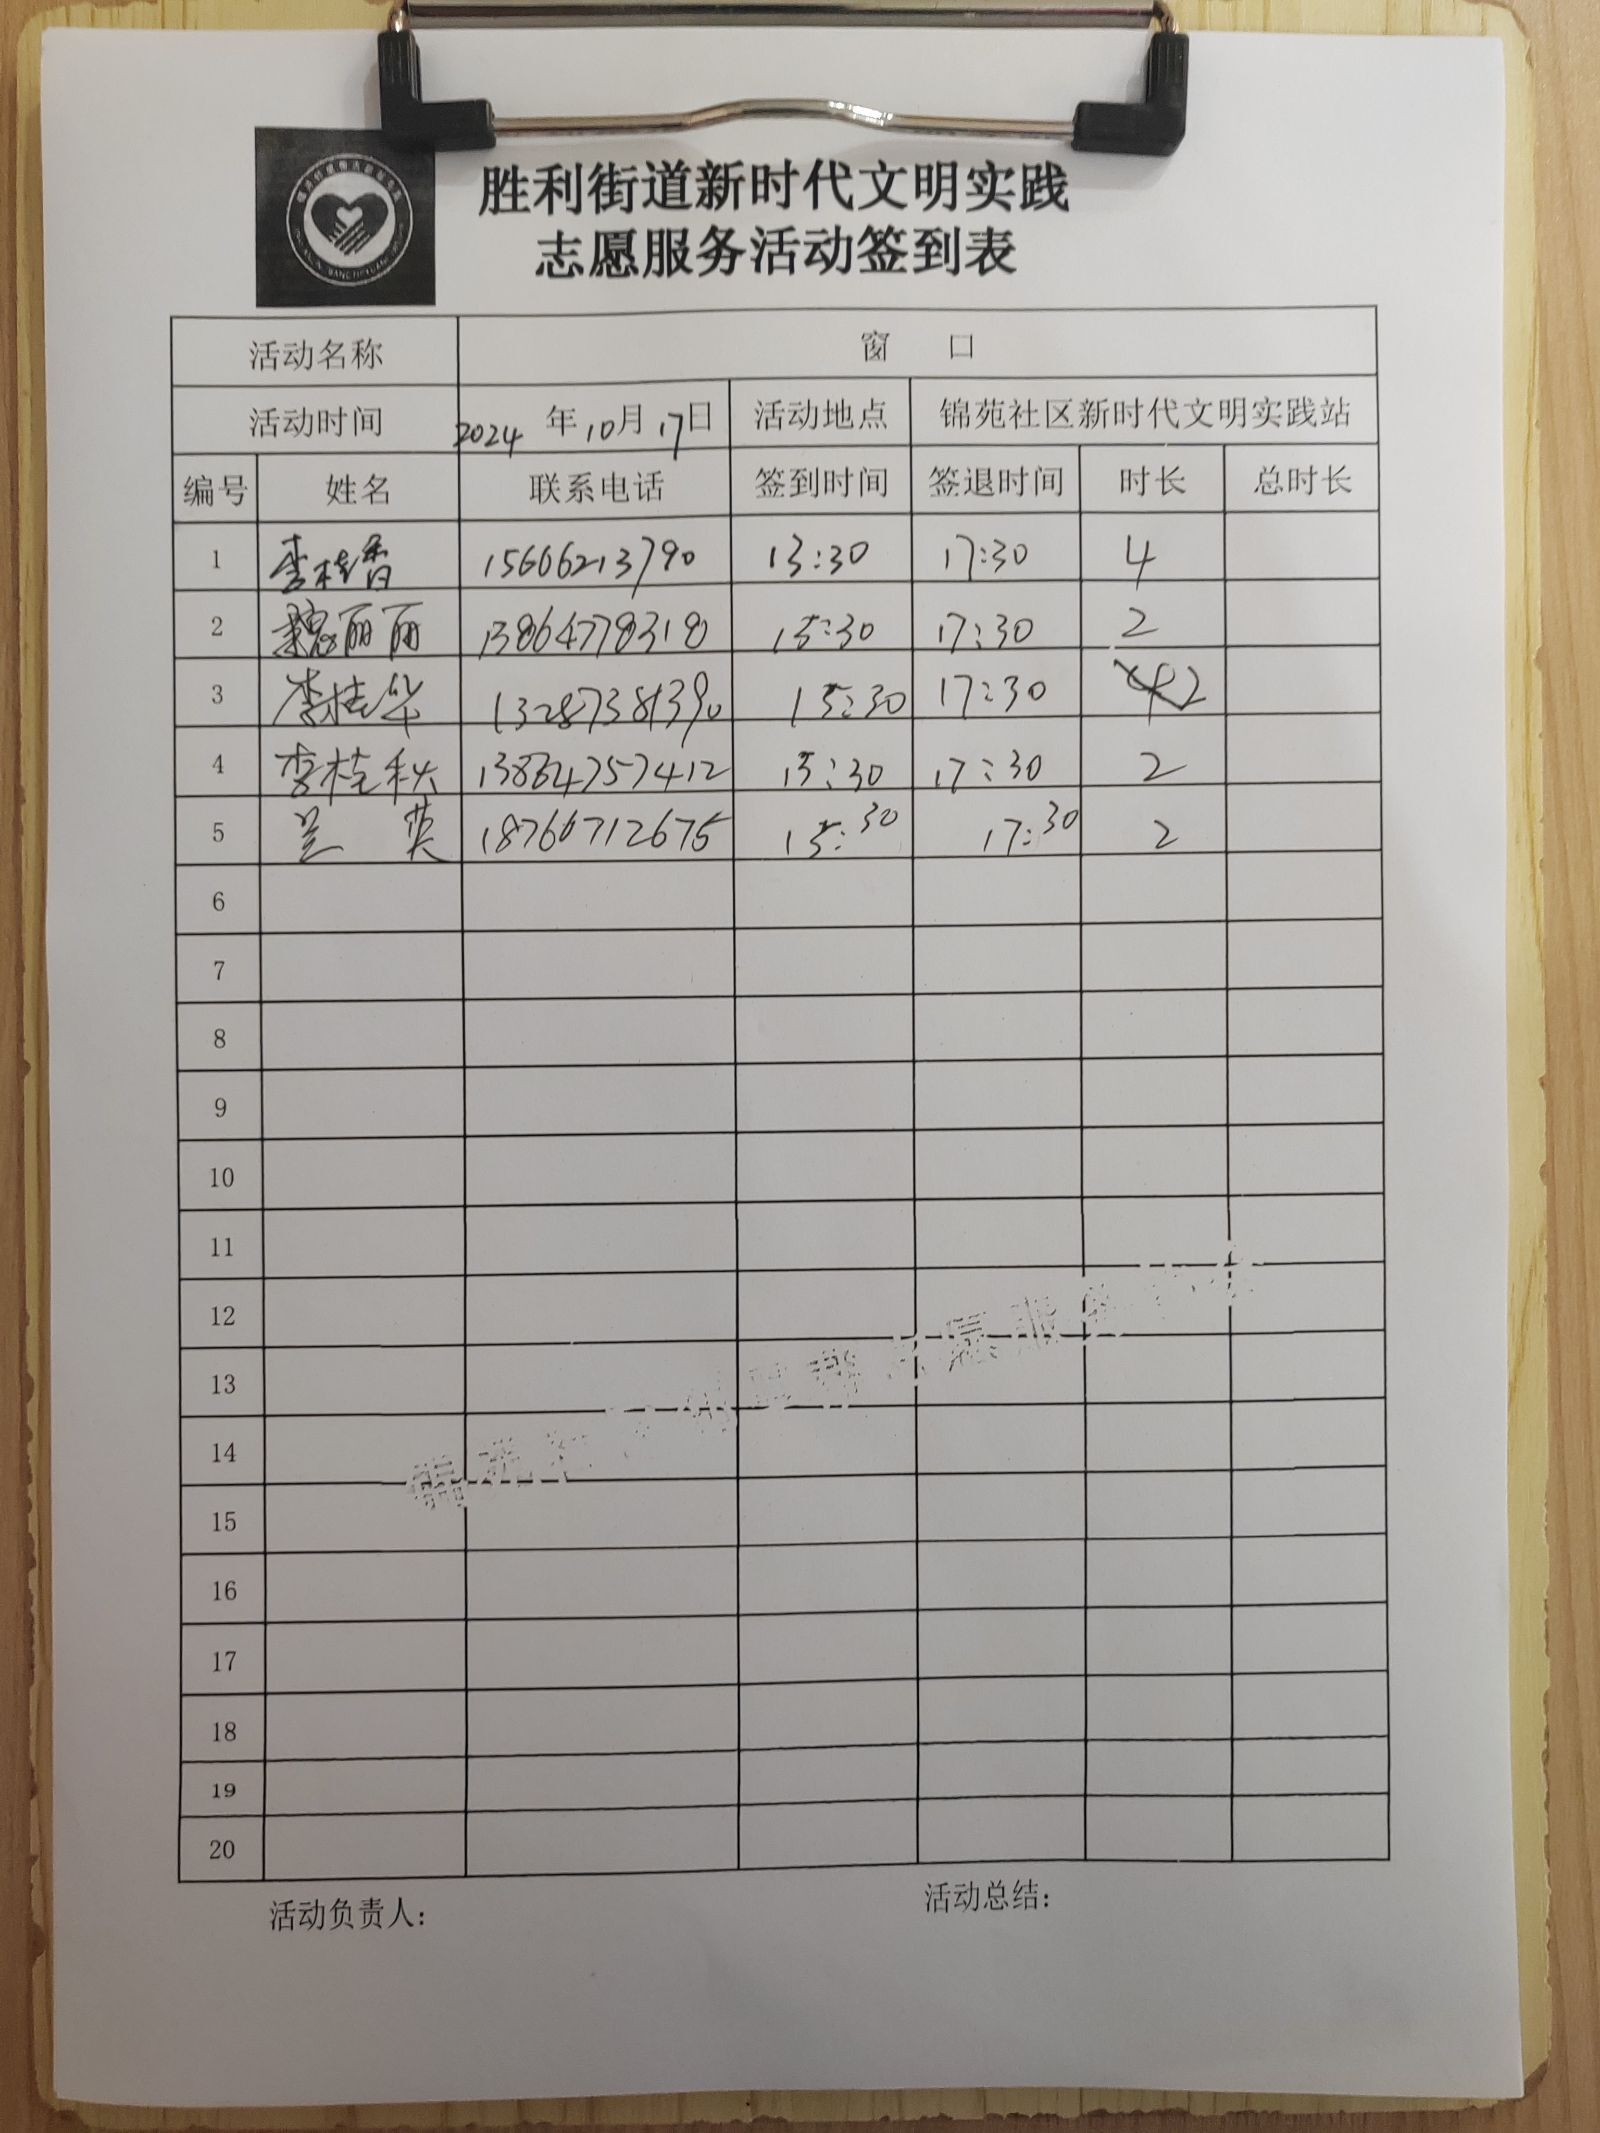 胜利街道新时代文明实践
志愿服务活动签到表
活动名称 窗 口
活动时间 2024年10月17日 活动地点 锦苑社区新时代文明实践站
编号 姓名 联系电话 签到时间 签退时间 时长 总时长
1 李桂香 15606213790 13:30 17:30 4
2 魏丽丽 13864778318 15:30 17:30 2
3 李桂华 13287381390 15:30 17:30 2
4 李桂秋 13864757412 15:30 17:30 2
5 兰 英 18766712675 15:30 17:30 2
6
7
8
9
10
11
12
13
14
15
16
17
18
19
20
活动负责人： 活动总结：